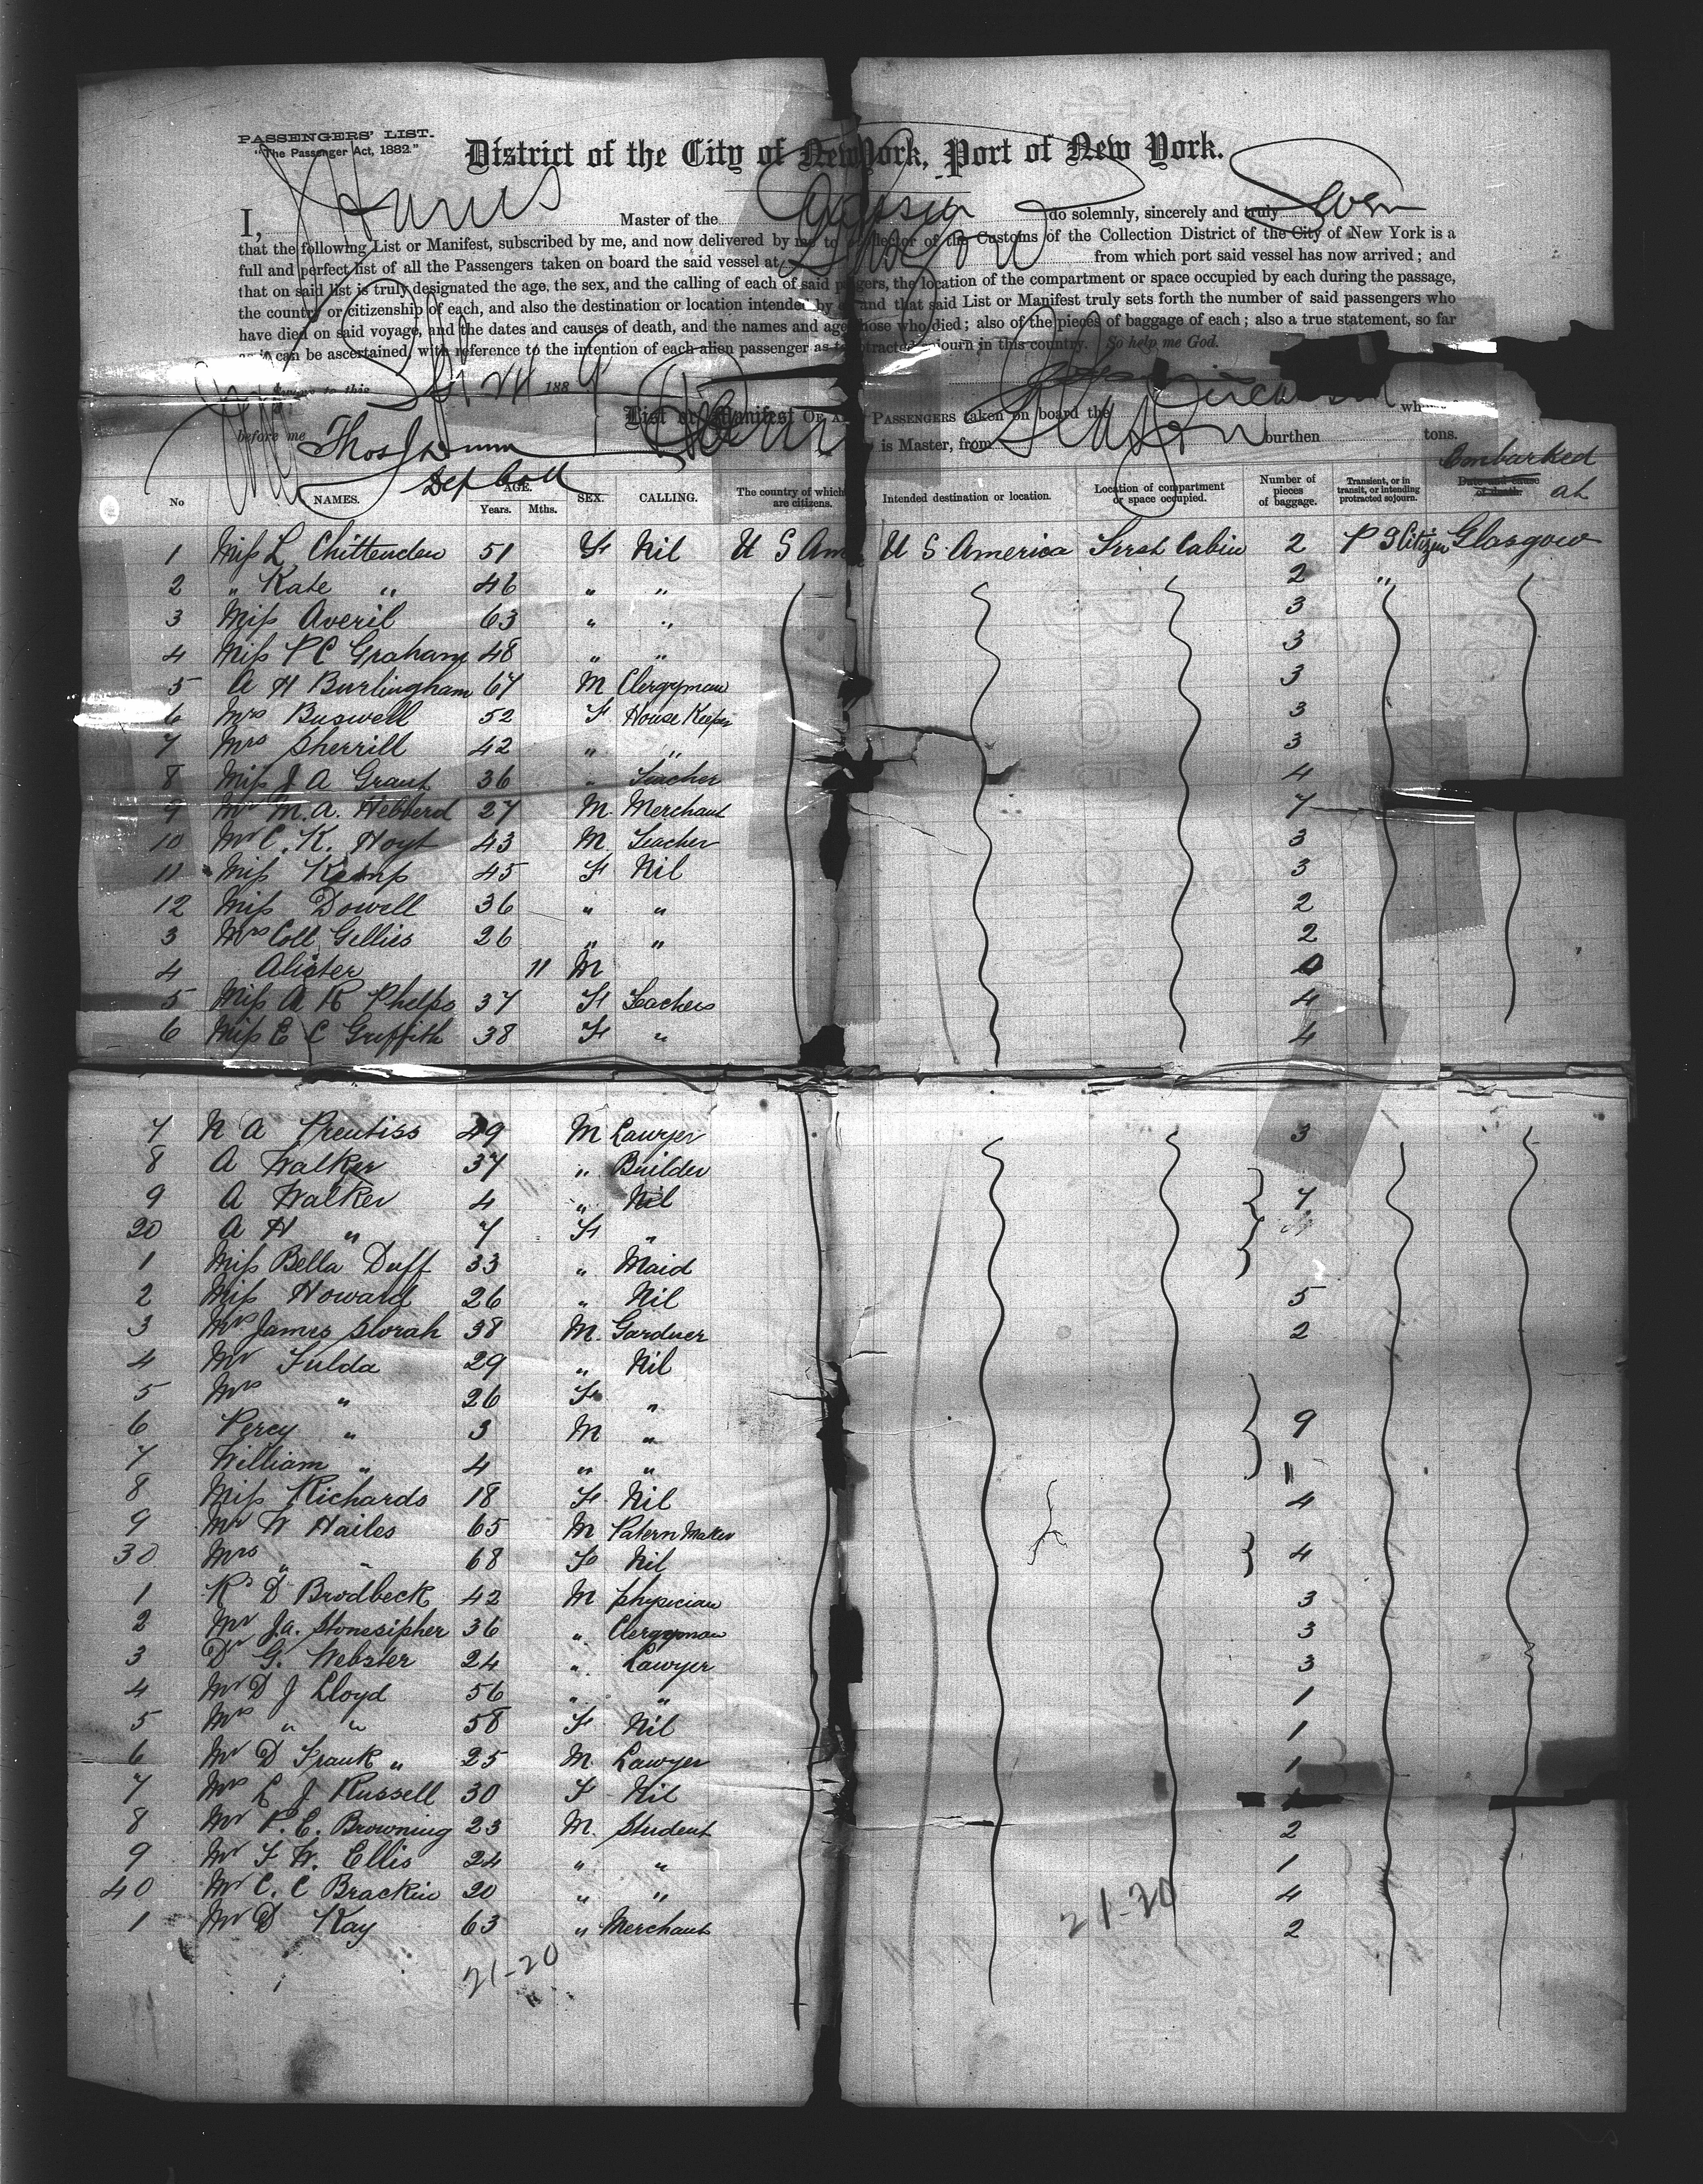 PASSENGERS' LIST.
"The Passenger Act, 1882."
District of the City of New York, Port of New York.
I, J Harris Master of the do solemnly, sincerely and truly Swear
that the following List or Manifest, subscribed by me, and now delivered by me to Collector of the Customs of the Collection District of the City of New York is a
full and perfect list of all the Passengers taken on board the said vessel at Glasgow from which port said vessel has now arrived; and
that on said list is truly designated the age, the sex, and the calling of each of said the location of the compartment or space occupied by each during the passage,
the country or citizenship of each, and also the destination or location intended by and that said List or Manifest truly sets forth the number of said passengers who
have died on said voyage, and the dates and causes of death, and the names and who died; also of the pieces of baggage of each; also a true statement, so far
can be ascertained, with reference to the intention of each alien passenger as to sojourn in this country. So help me God.
to this Sept 24 1889
List or Manifest OF PASSENGERS taken on board the
before me Thos J Dunn is Master, from burthen tons.
Dep Coll
Embarked at
No NAMES. AGE. Years. Mths. SEX. CALLING. The country of which are citizens. Intended destination or location. Location of compartment or space occupied. Number of pieces of baggage. Transient, or in transit, or intending protracted sojourn. Date and cause of death.
1 Miss L Chittenden 51 F Nil U S Am U S America First Cabin 2 P S Citizen Glasgow
2 " Kate " 46 " " 2 "
3 Miss Averil 63 " " 3
4 Miss P C Graham 48 " " 3
5 A H Burlingham 67 M Clergyman 3
6 Mrs Buswell 52 F House Keeper 3
7 Mrs Sherrill 42 " " 3
8 Miss J A Grant 36 " Teacher 4
9 Mr M. A. Hebberd 27 M Merchant 7
10 Mr C. K. Hoyt 43 M Teacher 3
11 Miss Kemp 45 F Nil 3
12 Miss Dowell 36 " " 2
3 Mrs Coll Gellies 26 " " 2
4 Alister 11 M 0
5 Miss A R Phelps 37 F Teachers 4
6 Miss E C Griffith 38 F " 4
7 N A Prentiss 49 M Lawyer 3
8 A Walker 37 " Builder
9 A Walker 4 " Nil 7
20 A H " 7 F "
1 Miss Bella Duff 33 " Maid
2 Miss Howard 26 " Nil 5
3 Mr James Slorah 38 M. Gardner 2
4 Mr Fulda 29 " Nil
5 Mrs " 26 F "
6 Percy " 3 M " 9
7 William " 4 " "
8 Miss Richards 18 F Nil 4
9 Mr W Hailes 65 M Patern Maker
30 Mrs " " 68 F Nil 4
1 R D Brodbeck 42 M physician 3
2 Mr J. A. Stonesipher 36 " Clergyman 3
3 Dr G. Webster 24 " Lawyer 3
4 Mr D J Lloyd 56 " " 1
5 Mrs " " 58 F Nil 1
6 Mr D Frank " 25 M. Lawyer 1
7 Mrs L J Russell 30 F Nil
8 Mr P. E. Browning 23 M. Student 2
9 Mr F W. Ellis 24 " " 1
40 Mr C. C Brackin 20 " " 4
1 Mr D Kay 63 " Merchant 2
21-20
21-20